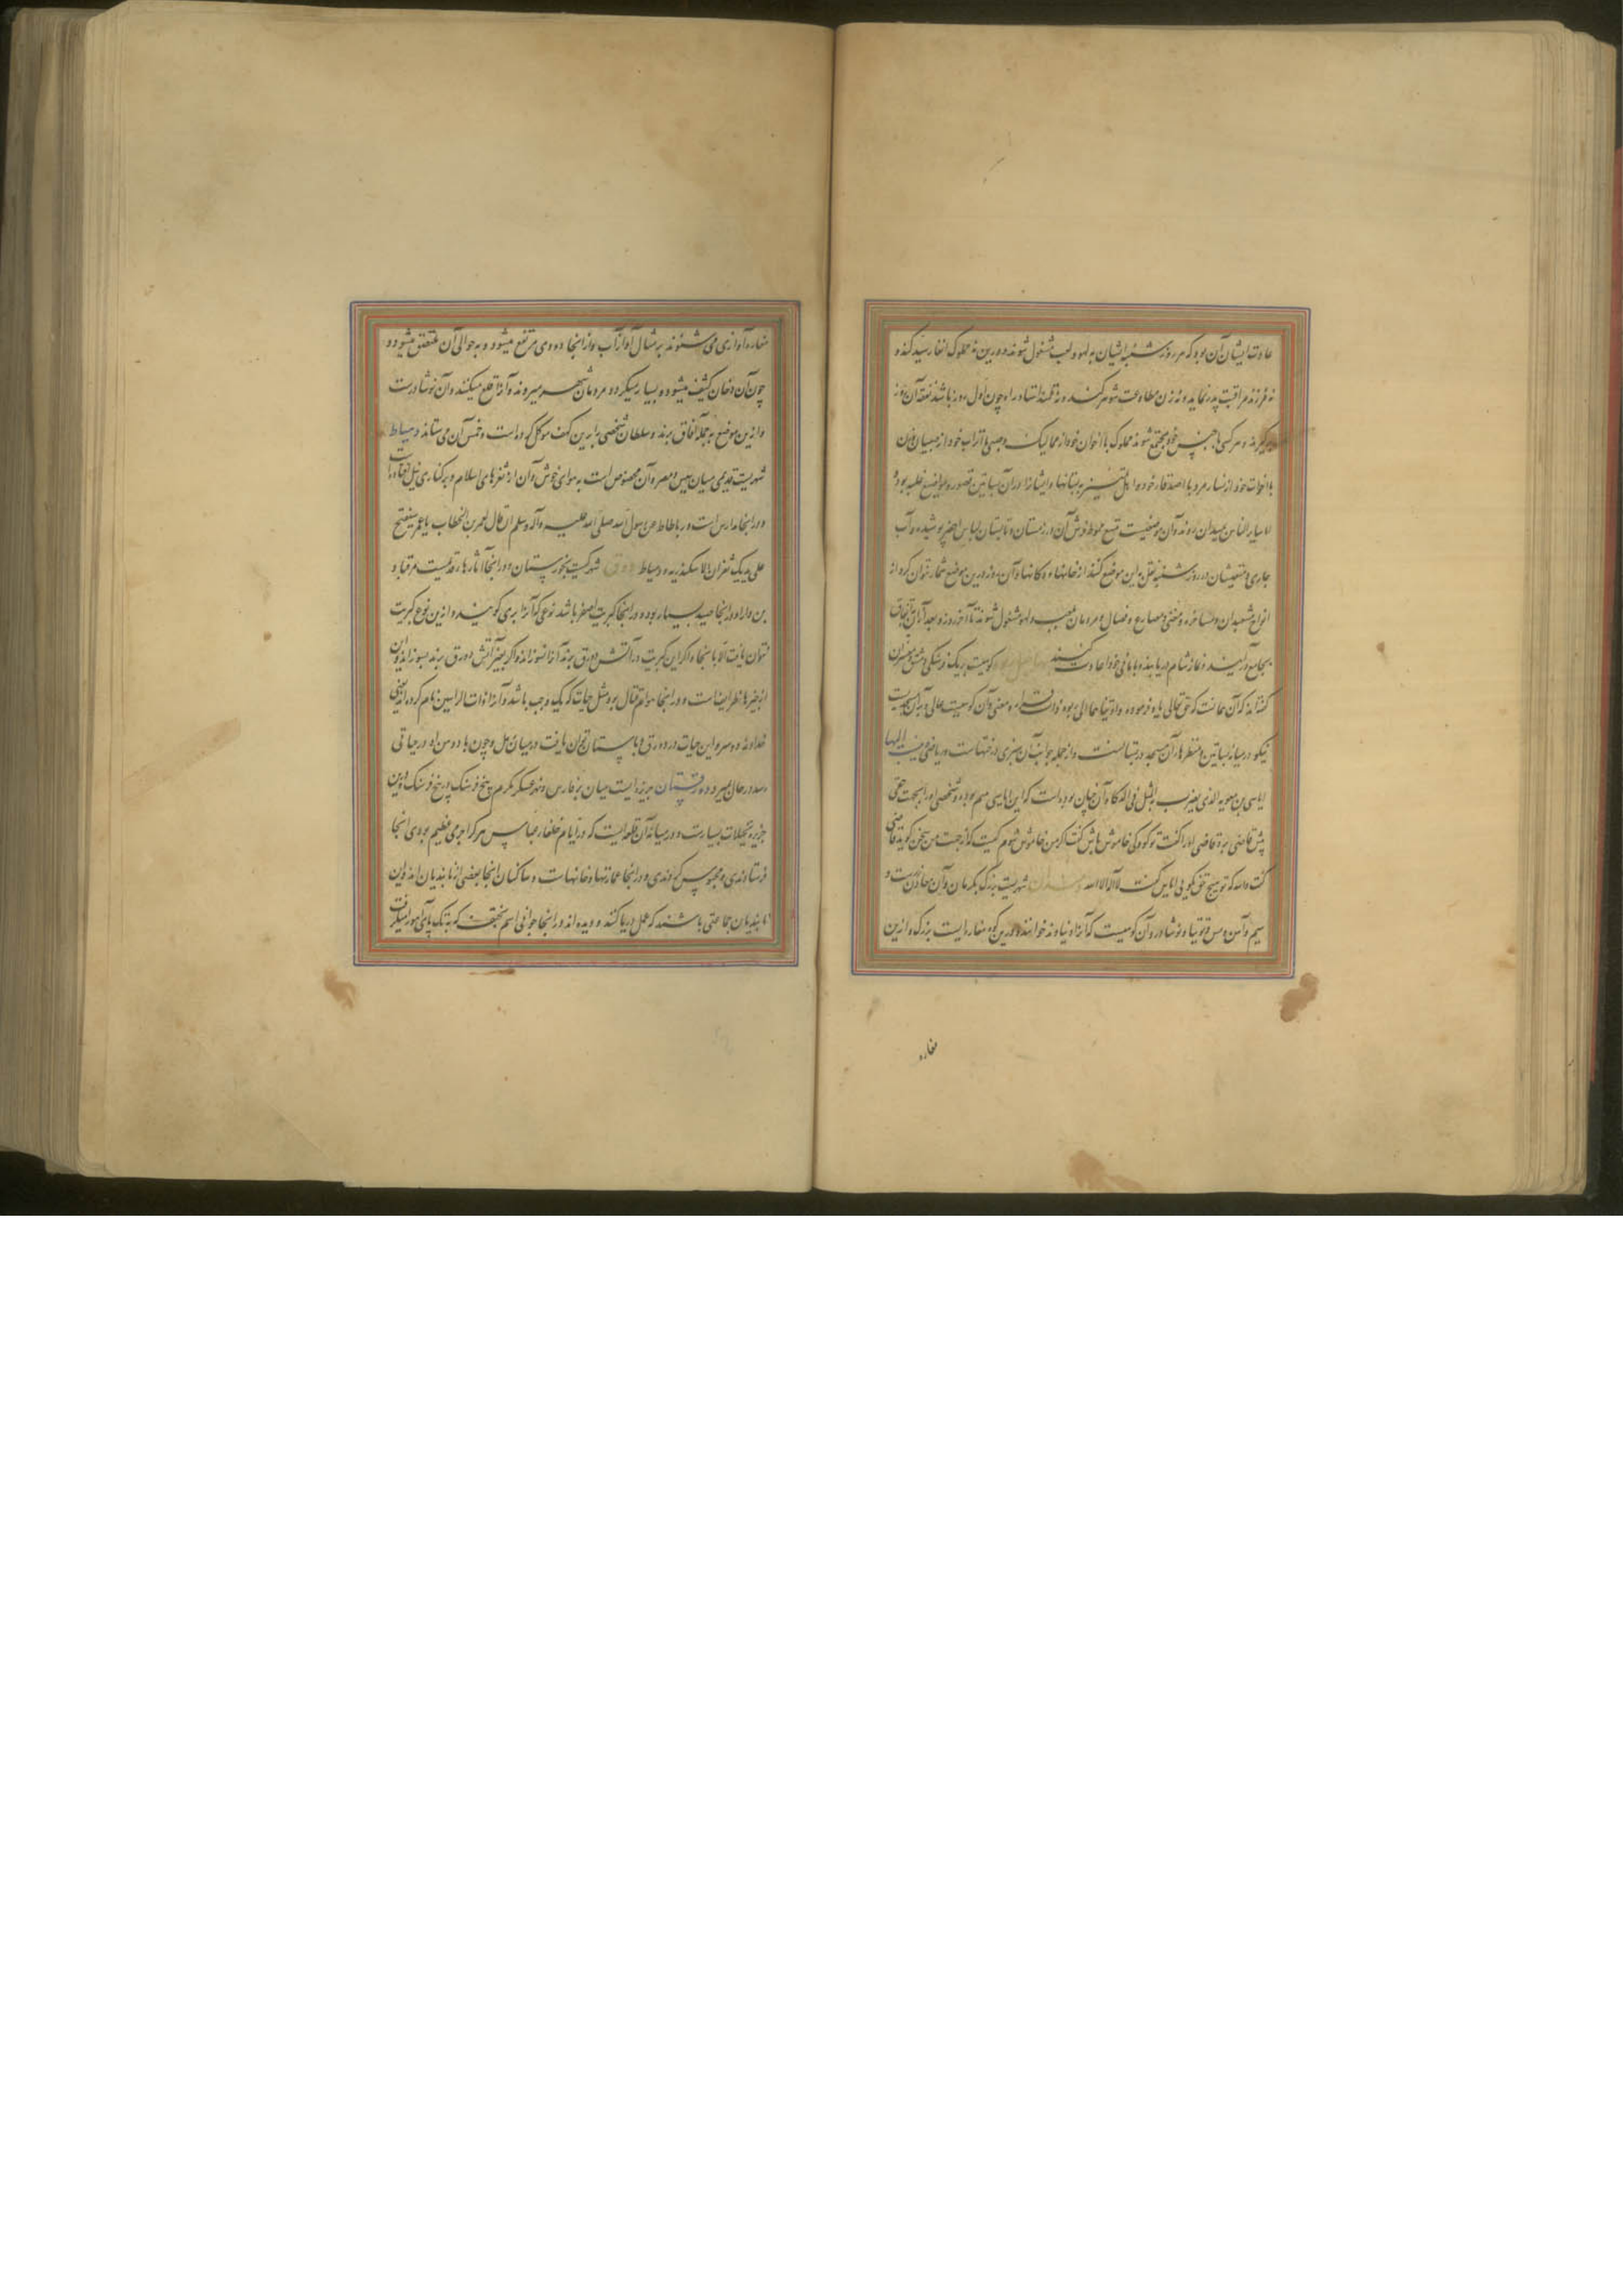 عادت ایشان آن بود که هر روز شنبه ایشان به لهو و لعب مشغول شوند و درین روز مملوک انقار سید نکند و
نه فرزند مراقبت پدر نماید و نه زن مطاوعت شوهر کند و نه تلمیذ استاد را و چون اول روز باشد نفقه آن روز
برگیرند و هر کسی با جنس خود مجتمع شوند مملوک با اخوان خود از ممالیک و صبی با اتراب خود از صبیان و زن
با اخوات خود از نساء و مرد با اصدقاء خود و اهل تمییز به بستانها و ایشانرا در آن بساتین قصور و مواضع طیبه بود و
اما سایر الناس بمیدان روند و آن موضعیست وسیع محوط فرش آن در زمستان و تابستان لباس اخضر پوشیده و آب
جاری و متعیشان در روز شنبه نقل به این موضع کنند از خانها و دکانها و آن روز درین موضع شمار نتوان کرد از
انواع مشعبدان و مساخره و مغنی و مصارع و فصال و مردمان بلعب و لهو مشغول شوند تا آخر روز و بعد از آن به اتفاق
بجامع درآیند و نماز شام دریابند و با مانی خود اعادت کنند کوهیست بر یک فرسنگی دمشق مفسران
گفته اند که آن جائیست که حق تعالی یاد فرموده و اویناهما الی ربوة ذات قرار و معین و آن کوهیست عالی و بر آن مسجدیست
نیکو در میان بساتین و منظرها و آن مسجد در بساتینست و از جمله جوانب آن سبزی درختهاست و ریاض و ینسب الیها
ایاس بن معویه الذی یضرب به المثل فی الذکاء و آن چنان بوده است که این ایاس یتیم بوده و شخصی او را بجهت حقی
پیش قاضی برد قاضی او را گفت تو کودکی خاموش باش گفت اگر من خاموش شوم کیست که از جهت من سخن گوید قاضی
گفت والله که تو هیچ حق نگویی ایاس گفت لا اله الا الله شهریست بزرگ بکرمان و آن معادن زرست و
سیم و آهن و مس و توتیا و نوشادر و آن کوهیست که آنرا دنباوند خوانند و درین کوه مغاره ایست بزرگ و ازین
مغاره
مغاره آوازی می شنوند بر مثال آواز آب و از آنجا دودی مرتفع میشود و به حوالی آن ملتصق میشود و
چون آن دخان کثیف میشود و بسیار میگردد مردمان شهر میروند و آنرا قلع میکنند و آن نوشادرست
و ازین موضع به جمله آفاق برند و سلطان شخصی را برین کهف موکل کرده است و خمس آن می ستاند دمیاط
شهریست قدیمی میان تنیس و مصر و آن مخصوص است به هوای خوش و آن از ثغرهای اسلام و بر کناری نیل
و در آنجا مدارس است و رباطات عن رسول الله صلی الله علیه و آله و سلم انه قال لعمر بن الخطاب یا عمر سیفتح
علی یدیک ثغران الاسکندریه و دمیاط دورق شهرکیست بخوزستان و در آنجا آثارها قدیمست مر قباد
بن دارا و در آنجا صید بسیار بود و در آنجا کبریت اصفر باشد نوعی که آنرا بری گویند و ازین نوع کبریت
نتوان یافت الا با ینجا و اگر این کبریت در آتش دورق برند آنرا نسوزاند و اگر بغیر آتش دورق برند بسوزاند و این
از چیزها نظر ایضا است و در اینجا هوام قتال بود مثل حیات که یک وجب باشد و آنرا ذات الراسین نام کرده اند یعنی
خداوند دو سر و این حیات در دورق و باسستان توان یافت در میان رمل و چون
رسد در حال میرد دورقستان جزیره ایست میان بحر فارس و نهر عسکر مکرم پنج فرسنگ در پنج فرسنگ و درین
جزیره نخیلات بسیارست و در میان آن قلعه ایست که در ایام خلفاء عباس هر کرا جرمی عظیم بودی آنجا
فرستادندی و محبوس کردندی و در اینجا عمارتها و خانهاست و ساکنان آنجا بعضی از نابندیان اند و این
نابندیان جماعتی باشند که عمل دریا کنند و دیده اند در آنجا جوانی اسم که به تک پای آهو را میگرفت